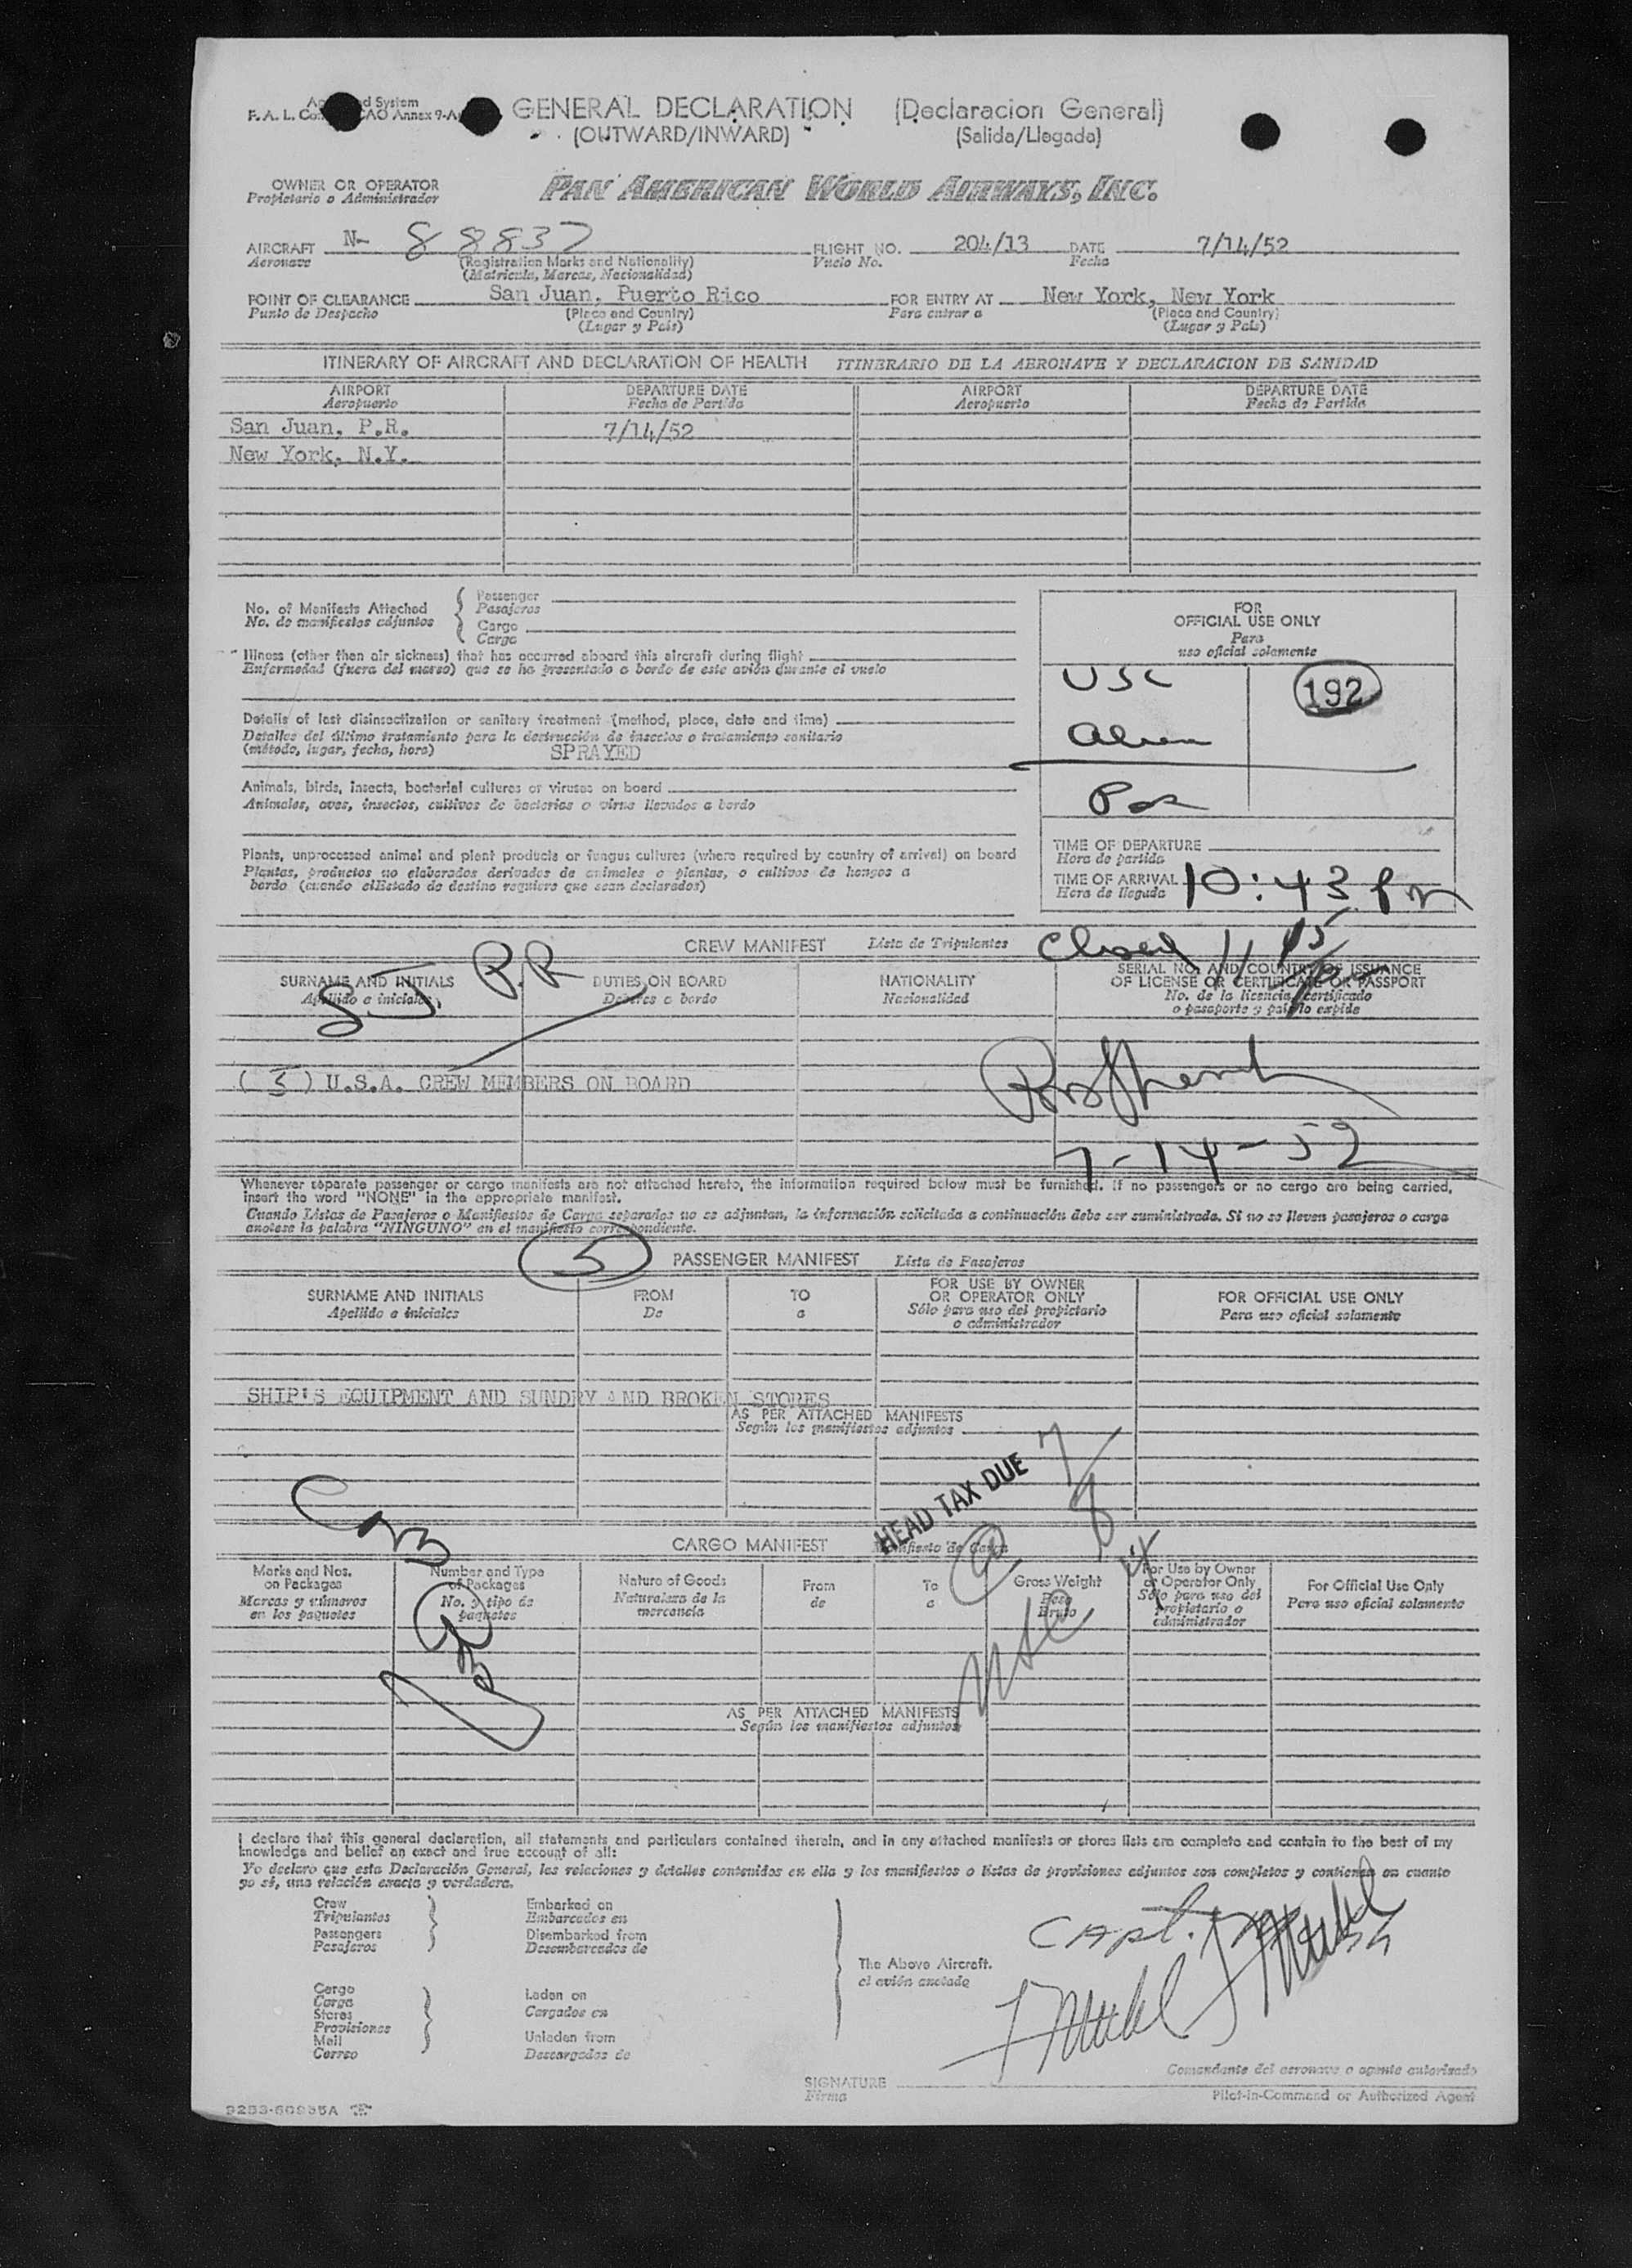 GENERAL DECLARATION (Declaracion General)
(OUTWARD/INWARD) (Salida/Llegada)
OWNER OR OPERATOR PAN AMERICAN WORLD AIRWAYS, INC.
Propietario o Administrador
AIRCRAFT N- 88837 FLIGHT NO. 204/13 DATE 7/14/52
Aeronave (Registration Marks and Nationality) Vuelo No. Fecha
(Matricula, Marcas, Nacionalidad)
POINT OF CLEARANCE San Juan, Puerto Rico FOR ENTRY AT New York, New York
Punto de Despacho (Place and Country) Para entrar a (Place and Country)
(Lugar y País) (Lugar y País)
ITINERARY OF AIRCRAFT AND DECLARATION OF HEALTH ITINERARIO DE LA AERONAVE Y DECLARACION DE SANIDAD
AIRPORT DEPARTURE DATE AIRPORT DEPARTURE DATE
Aeropuerto Fecha de Partida Aeropuerto Fecha de Partida
San Juan, P.R. 7/14/52
New York, N.Y.
No. of Manifests Attached
No. de manifiestos adjuntos
Passenger
Pasajeros
Cargo
Carga
Illness (other than air sickness) that has occurred aboard this aircraft during flight
Enfermedad (fuera del mareo) que se ha presentado a bordo de este avión durante el vuelo
Details of last disinsectization or sanitary treatment (method, place, date and time)
Detalles del último tratamiento para la destrucción de insectos o tratamiento sanitario
(método, lugar, fecha, hora) SPRAYED
Animals, birds, insects, bacterial cultures or viruses on board
Animales, aves, insectos, cultivos de bacterias o virus llevados a bordo
Plants, unprocessed animal and plant products or fungus cultures (where required by country of arrival) on board
Plantas, productos no elaborados derivados de animales o plantas, o cultivos de hongos a
bordo (cuando el Estado de destino requiera que sean declarados)
FOR
OFFICIAL USE ONLY
Para
uso oficial solamente
USC 192
Alien
TIME OF DEPARTURE
Hora de partida
TIME OF ARRIVAL 10:43 Pm
Hora de llegada
Closed 11 15
CREW MANIFEST Lista de Tripulantes
SURNAME AND INITIALS DUTIES ON BOARD NATIONALITY SERIAL NO. AND COUNTRY OF ISSUANCE
OF LICENSE OR CERTIFICATE OR PASSPORT
Apellido e iniciales Deberes a bordo Nacionalidad No. de la licencia, certificado
o pasaporte y país lo expide
S.J. P.R
(5) U.S.A. CREW MEMBERS ON BOARD
7-14-52
Whenever separate passenger or cargo manifests are not attached hereto, the information required below must be furnished. If no passengers or no cargo are being carried,
insert the word "NONE" in the appropriate manifest.
Cuando Listas de Pasajeros o Manifiestos de Carga separados no se adjuntan, la información solicitada a continuación debe ser suministrada. Si no se lleven pasajeros o carga
anotese la palabra "NINGUNO" en el manifiesto correspondiente.
5 PASSENGER MANIFEST Lista de Pasajeros
SURNAME AND INITIALS FROM TO FOR USE BY OWNER
OR OPERATOR ONLY FOR OFFICIAL USE ONLY
Apellido e iniciales De a Sólo para uso del propietario
o administrador Para uso oficial solamente
SHIP'S EQUIPMENT AND SUNDRY AND BROKEN STORES
AS PER ATTACHED MANIFESTS
Según los manifiestos adjuntos
HEAD TAX DUE
CARGO MANIFEST Manifiesto de Carga
Marks and Nos.
on Packages
Marcas y números
en los paquetes
Number and Type
of Packages
No. y tipo de
paquetes
Nature of Goods
Naturaleza de la
mercancia
From
de
To
a
Gross Weight
Peso
Bruto
For Use by Owner
or Operator Only
Sólo para uso del
propietario o
administrador
For Official Use Only
Para uso oficial solamente
AS PER ATTACHED MANIFESTS
Según los manifiestos adjuntos
I declare that this general declaration, all statements and particulars contained therein, and in any attached manifests or stores lists are complete and contain to the best of my
knowledge and belief an exact and true account of all:
Yo declaro que esta Declaración General, las relaciones y detalles contenidos en ella y los manifiestos o listas de provisiones adjuntos son completos y contienen en cuanto
yo sé, una relación exacta y verdadera.
Crew
Tripulantes
Passengers
Pasajeros
Embarked on
Embarcados en
Disembarked from
Desembarcados de
Cargo
Carga
Stores
Provisiones
Mail
Correo
Laden on
Cargados en
Unladen from
Descargados de
The Above Aircraft.
el avión anotado
Capt.
SIGNATURE
Firma
Comandante del aeronave o agente autorizado
Pilot-in-Command or Authorized Agent